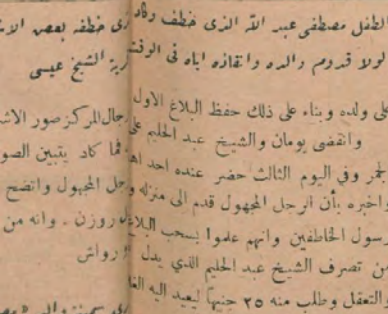 الطفل مصطفى عبد الله الذى خطف وكاد
لولا قدوم والده وانقاذه اياه فى الوقت
على ولده وبناء على ذلك حفظ البلاغ الاول
وانقضى يومان والشيخ عبد الحليم على
الجمر وفي اليوم الثالث حضر عنده احد
واخبره بأن الرجل المجهول قدم الى منزله
رسول الخاطفين وانهم علموا بسحب البلاغ
من تصرف الشيخ عبد الحليم الذي يدل
والتعقل وطلب منه ٢٥ جنيهاً ليعيد اليه
خطفه بعض
الشيخ عيسى
رجال المركز صور
فما كاد يتبين
رجل المجهول واتضح
روزن . وانه من
رواش